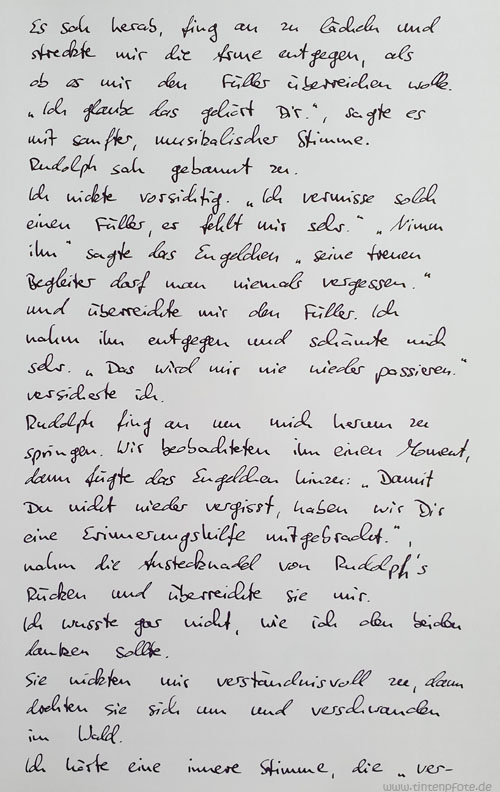 Es sah herab, fing an zu lächeln und
streckte mir die Arme entgegen, als
ob es mir den Füller überreichen wolle.
„Ich glaube das gehört Dir.“, sagte es
mit sanfter, musikalischer Stimme.
Rudolph sah gebannt zu.
Ich nickte vorsichtig. „Ich vermisse solch
einen Füller, er fehlt mir sehr.“ „Nimm
ihn“ sagte das Engelchen „seine treuen
Begleiter darf man niemals vergessen.“
und überreichte mir den Füller. Ich
nahm ihn entgegen und schämte mich
sehr. „Das wird mir nie wieder passieren.“
versicherte ich.
Rudolph fing an um mich herum zu
springen. Wir beobachteten ihn einen Moment,
dann fügte das Engelchen hinzu: „Damit
Du nicht wieder vergisst, haben wir Dir
eine Erinnerungshilfe mitgebracht.“,
nahm die Anstecknadel von Rudolph's
Rücken und überreichte sie mir.
Ich wusste gar nicht, wie ich den beiden
danken sollte.
Sie nickten mir verständnisvoll zu, dann
drehten sie sich um und verschwanden
im Wald.
Ich hörte eine innere Stimme, die „ver-
www.tintenpfote.de